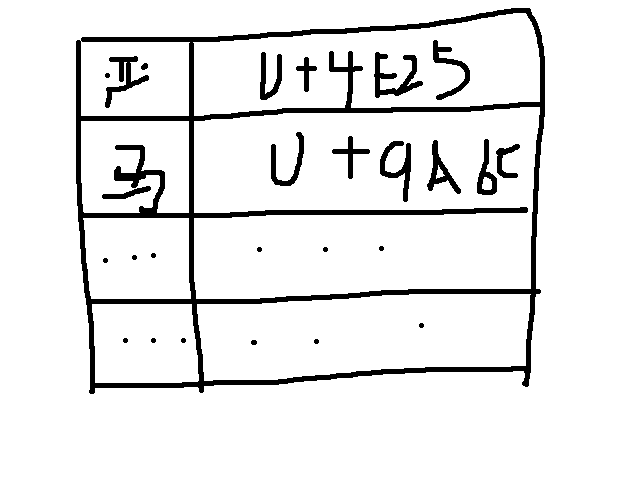 严 U+4E25
马 U+9A6C
... ...
... ...